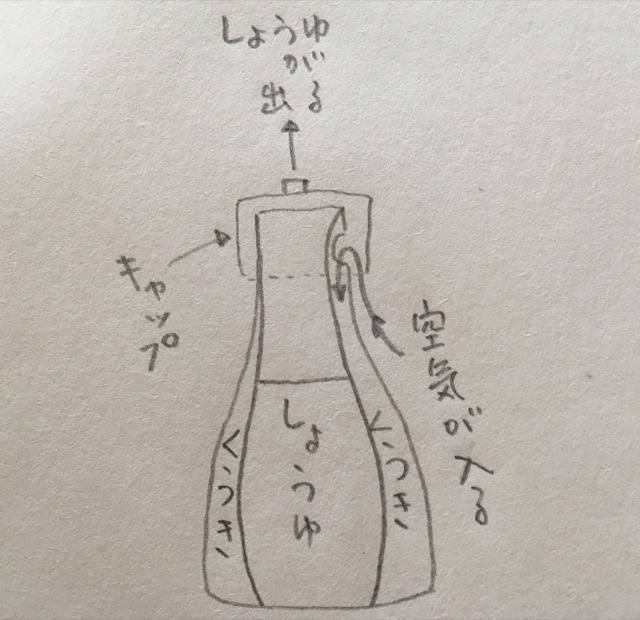 しょうゆ
が
出る
キャップ
空気が入る
しょうゆ
くうき
くうき